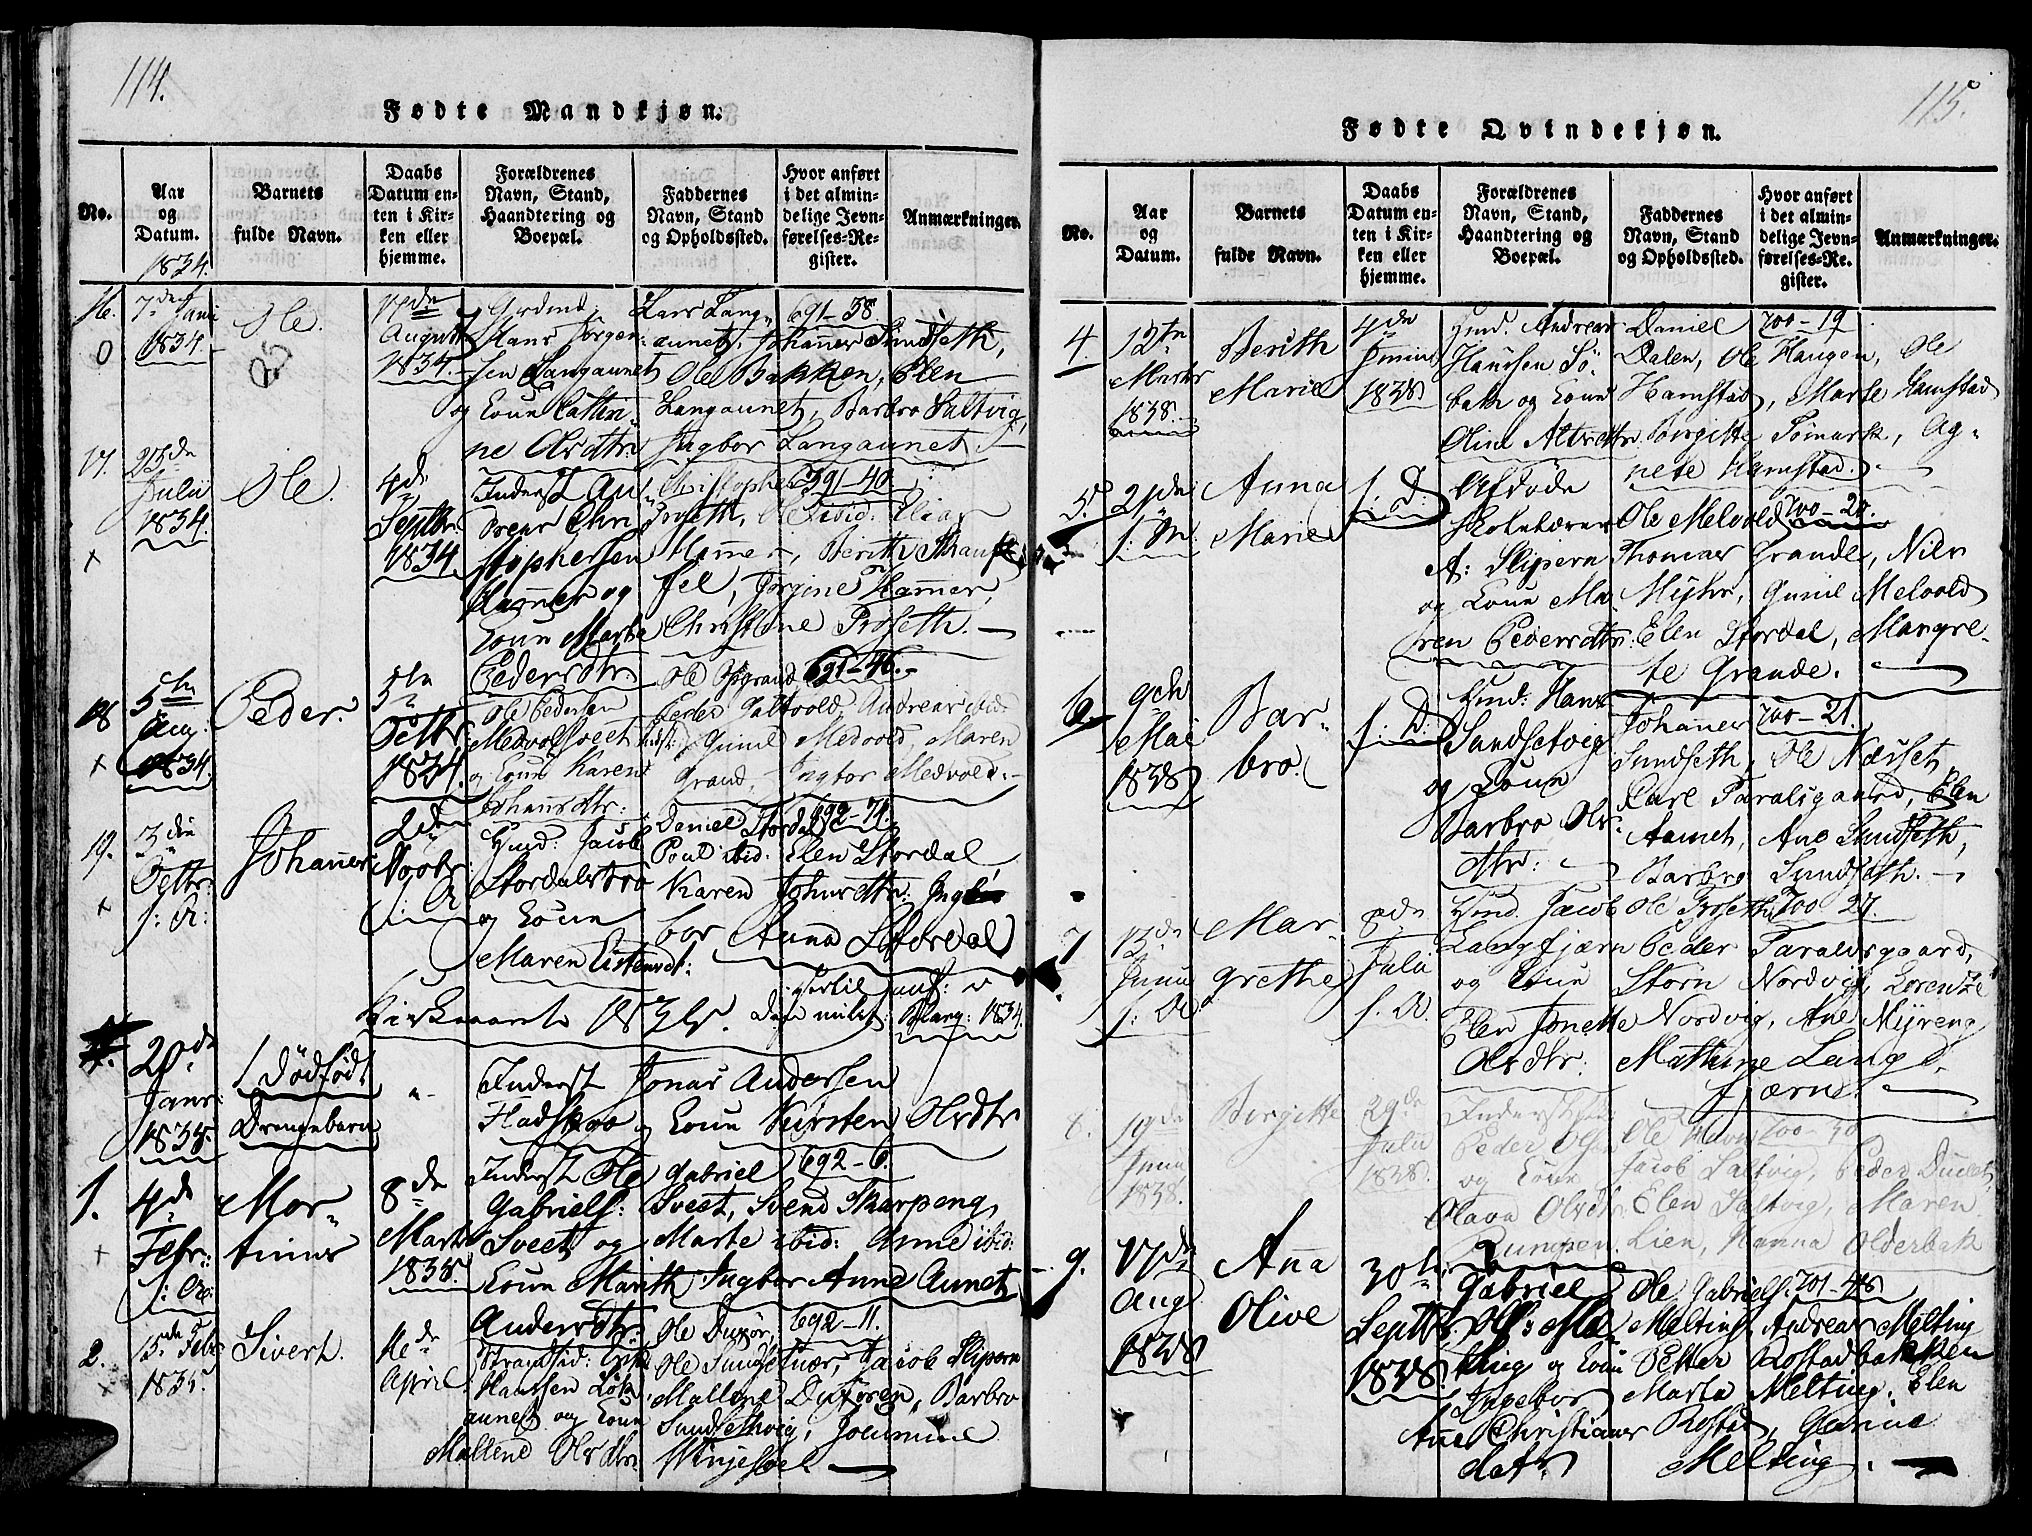 114.
Fødte Mandkjøn.
No.
Aar
og
Datum.
1834.
Barnets
fulde Navn.
Daabs
Datum en-
ten i Kir-
ken eller
hjemme.
Forældrenes
Navn, Stand,
Haandtering og
Boepæl.
Faddernes
Navn, Stand
og Opholdssted.
Hvor anført
i det almin-
delige Jevn-
førelses-Re-
gister.
Anmærkninger.
16. 7de Juni
1834.
Ole.
17de
August
1834.
Hans Jørgen-
sen Langaunet
og Konе Cathri-
ne Olsdtr:
Lars Lang-
aunet, Johannes Sundseth,
Ole Bakken, Elen
Langaunet, Barbro Saltvig,
Ingbor Langaunet.
691-38.
17. 23de
Julii
1834.
Ole.
4de
Septbr.
1834.
Inderst An-
dreas Chri-
stophersen
Hammer og
Kone Marte
Pedersdtr:
Christopher
Proseth, Ole ibid: Elias
Hammer, Berith Skauf-
fel, Jørgine Hammer,
Christine Proseth.
391-40.
18 5te
Aug:
1834.
Peder.
5te
Octbr:
1834.
Ole Pedersen
Medvolsveet
og Kone Karen
Johansdtr:
Ole Opgrand
Peder Hallvold, Andreas ibid
Gunil Medvold, Maren
Grand, Ingbor Medvold.
691-46.
19. 3die
Octbr:
f: A:
Johannes
2den
Novbr:
f: A
Huusd: Jacob
Stordalsbro
og Kone
Maren Eistensdt:
Daniel Stordal
Poul ibid: Elen Stordal
Karen Johnsdtr: Ing-
bor Anna Stordal
692-71.
Kirkeaaret 1835.
1834.
20de
Janr:
1835.
1 Dødfødt
Drengebarn
Inderst Jonas Andersen
Hadskoo og Kone Kirsten Olsdtr
1. 4de
Febr:
f: A:
Mor-
tinus
8de
Marts
1835.
Inderst Ole
Gabriels:
Sveet og
Kone Marith
Andersdtr:
Gabriel
Sveet, Svend Skarpeng
Marte ibid: Anne ibid:
Ingbor Anne Aunet
692-6.
2. 15de Febr
1835.
Sivert.
16de
April
Strandsid: Erik
Hansen Løk-
aunet og Kone
Mallene Olsdtr:
Ole Duxør,
Ole Sundsetnær, Jacob Slipern
Mallene Duxøren, Barbro
Sundsethvig, Joemine
Winjesoel.
692-11.
115.
Fødte Qvindekjøn.
No.
Aar
og
Datum.
Barnets
fulde Navn.
Daabs
Datum en-
ten i Kir-
ken eller
hjemme.
Forældrenes
Navn, Stand,
Haandtering og
Boepæl.
Faddernes
Navn, Stand
og Opholdssted.
Hvor anført
i det almin-
delige Jevn-
førelses-Re-
gister.
Anmærkninger.
4. 12te
Marts
1838.
Berith
Marie
4de
Junii
1838
Huusd. Andreas
Hansen Sø-
bak og Kone
Oline Alsesdtr
Daniel
Dalen, Ole Haugen, Ole
Hamstad, Marte Hamstad
Birgitte Tømark, Ag-
nete Hamstad.
700-19
5. 21de
f: M:
Anna
Marie
f: D:
Afdøde
Skolelærer
A: Slipern
og Kone Ma-
ren Pedersdtr:
Ole Melvold
Thomas Grande, Niels
Myhr, Gunil Melvold
Elen Stordal, Mangre-
te Grande.
700-20.
6. 9de
Mai
1838
Bar-
bro.
f: D:
Huusd: Hans
Sundsetvig
og Kone
Barbro Ols-
dtr:
Johannes
Sundseth, Ole Næsset,
Carl Faralsgaard, Elen
Aamet, Ane Sundseth,
Barbro Sundseth.
700-21.
7 13de
Junii
f: A:
Mar-
grethe
8de
Julii
f. A.
Huusd. Jacob
Langfjærn
og Kone
Elen Jonette
Olsdtr:
Ole Troseth
Peder Faralsgaard,
Storn Nordvig, Lorentze
Nordvig, Ane Myreng
Mattine Lang-
fjærn.
700 27.
8. 19de
Junii
1838.
Birgitte
29de
Julii
1838.
Peder Olsen
og Kone
Olava Olsdtr
Rumpen.
Ole Mavn
Jacob Saltvig, Peder Duclet,
Elen Saltvig, Maren
Lien, Hanna Olderbak
700-30
9. 17de
Aug
1838
Anna
Olive
30te
Septbr
1838
Gabriel
Ols: Mel-
ting og Kone
Ingebor
Ane Christians
datr
Ole Gabriels.
Melting, Andreas Melting
Petter Rostadbakken
Marta Melting. Elen
Rostad, Gurine
Melting.
701-48